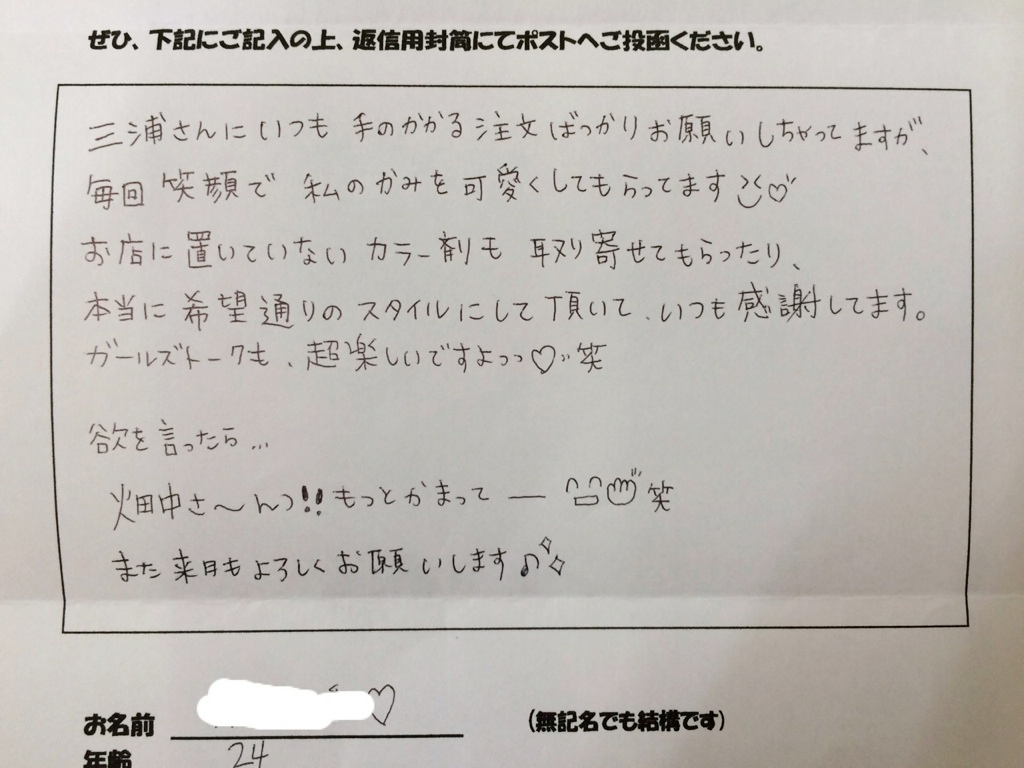 ぜひ、下記にご記入の上、返信用封筒にてポストへご投函ください。
三浦さんにいつも 手のかかる注文ばっかりお願いしちゃってますが、
毎回 笑顔で 私のかみを可愛くしてもらってます♡
お店に置いていない カラー剤も 取り寄せてもらったり、
本当に希望通りのスタイルにして頂いて、いつも感謝してます。
ガールズトークも、超楽しいですよっっ♡笑
欲を言ったら...
畑中さ〜んっ!!もっとかまって― 笑
また来月もよろしくお願いします♪
お名前 ♡ (無記名でも結構です)
年齢 24